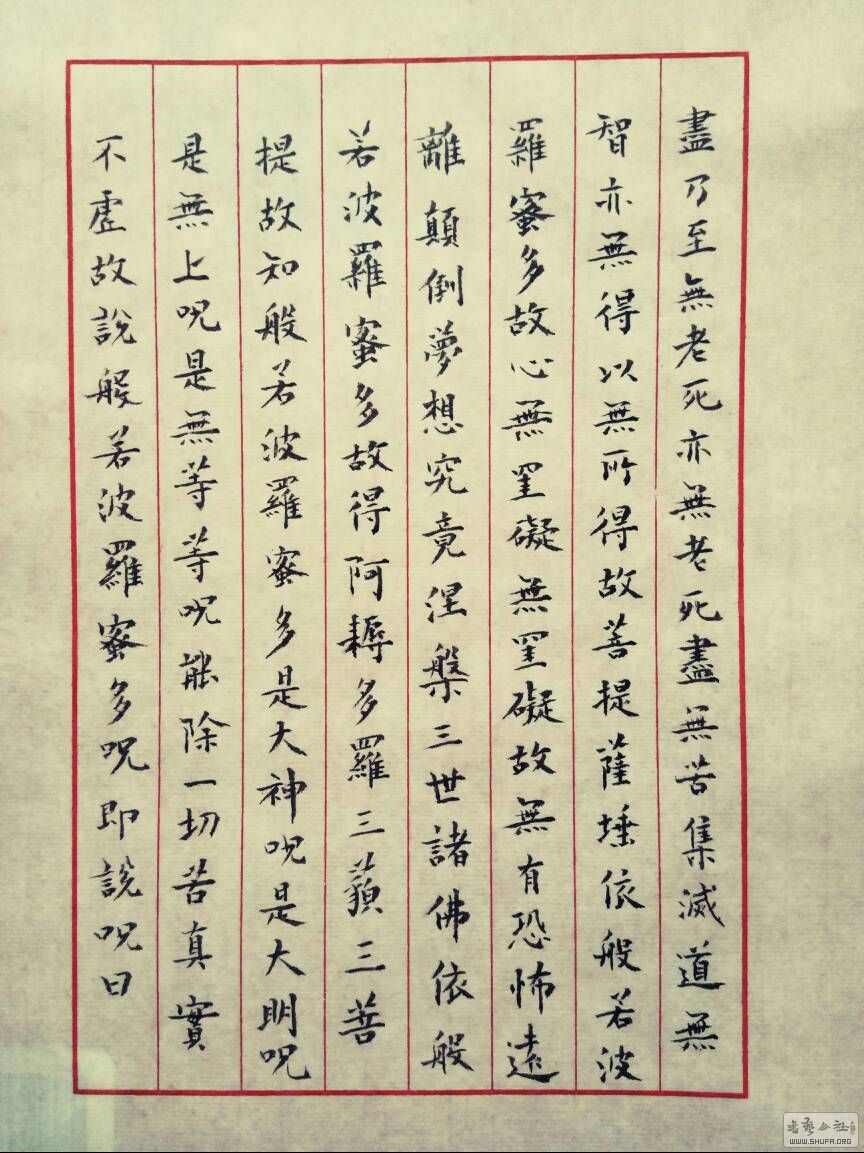 盡乃至無老死亦無老死盡無苦集滅道無
智亦無得以無所得故菩提薩埵依般若波
羅蜜多故心無罣礙無罣礙故無有恐怖遠
離顛倒夢想究竟涅槃三世諸佛依般
若波羅蜜多故得阿耨多羅三藐三菩
提故知般若波羅蜜多是大神呪是大明呪
是無上呪是無等等呪能除一切苦真實
不虛故說般若波羅蜜多呪即說呪曰
WWW.SHUFA.ORG